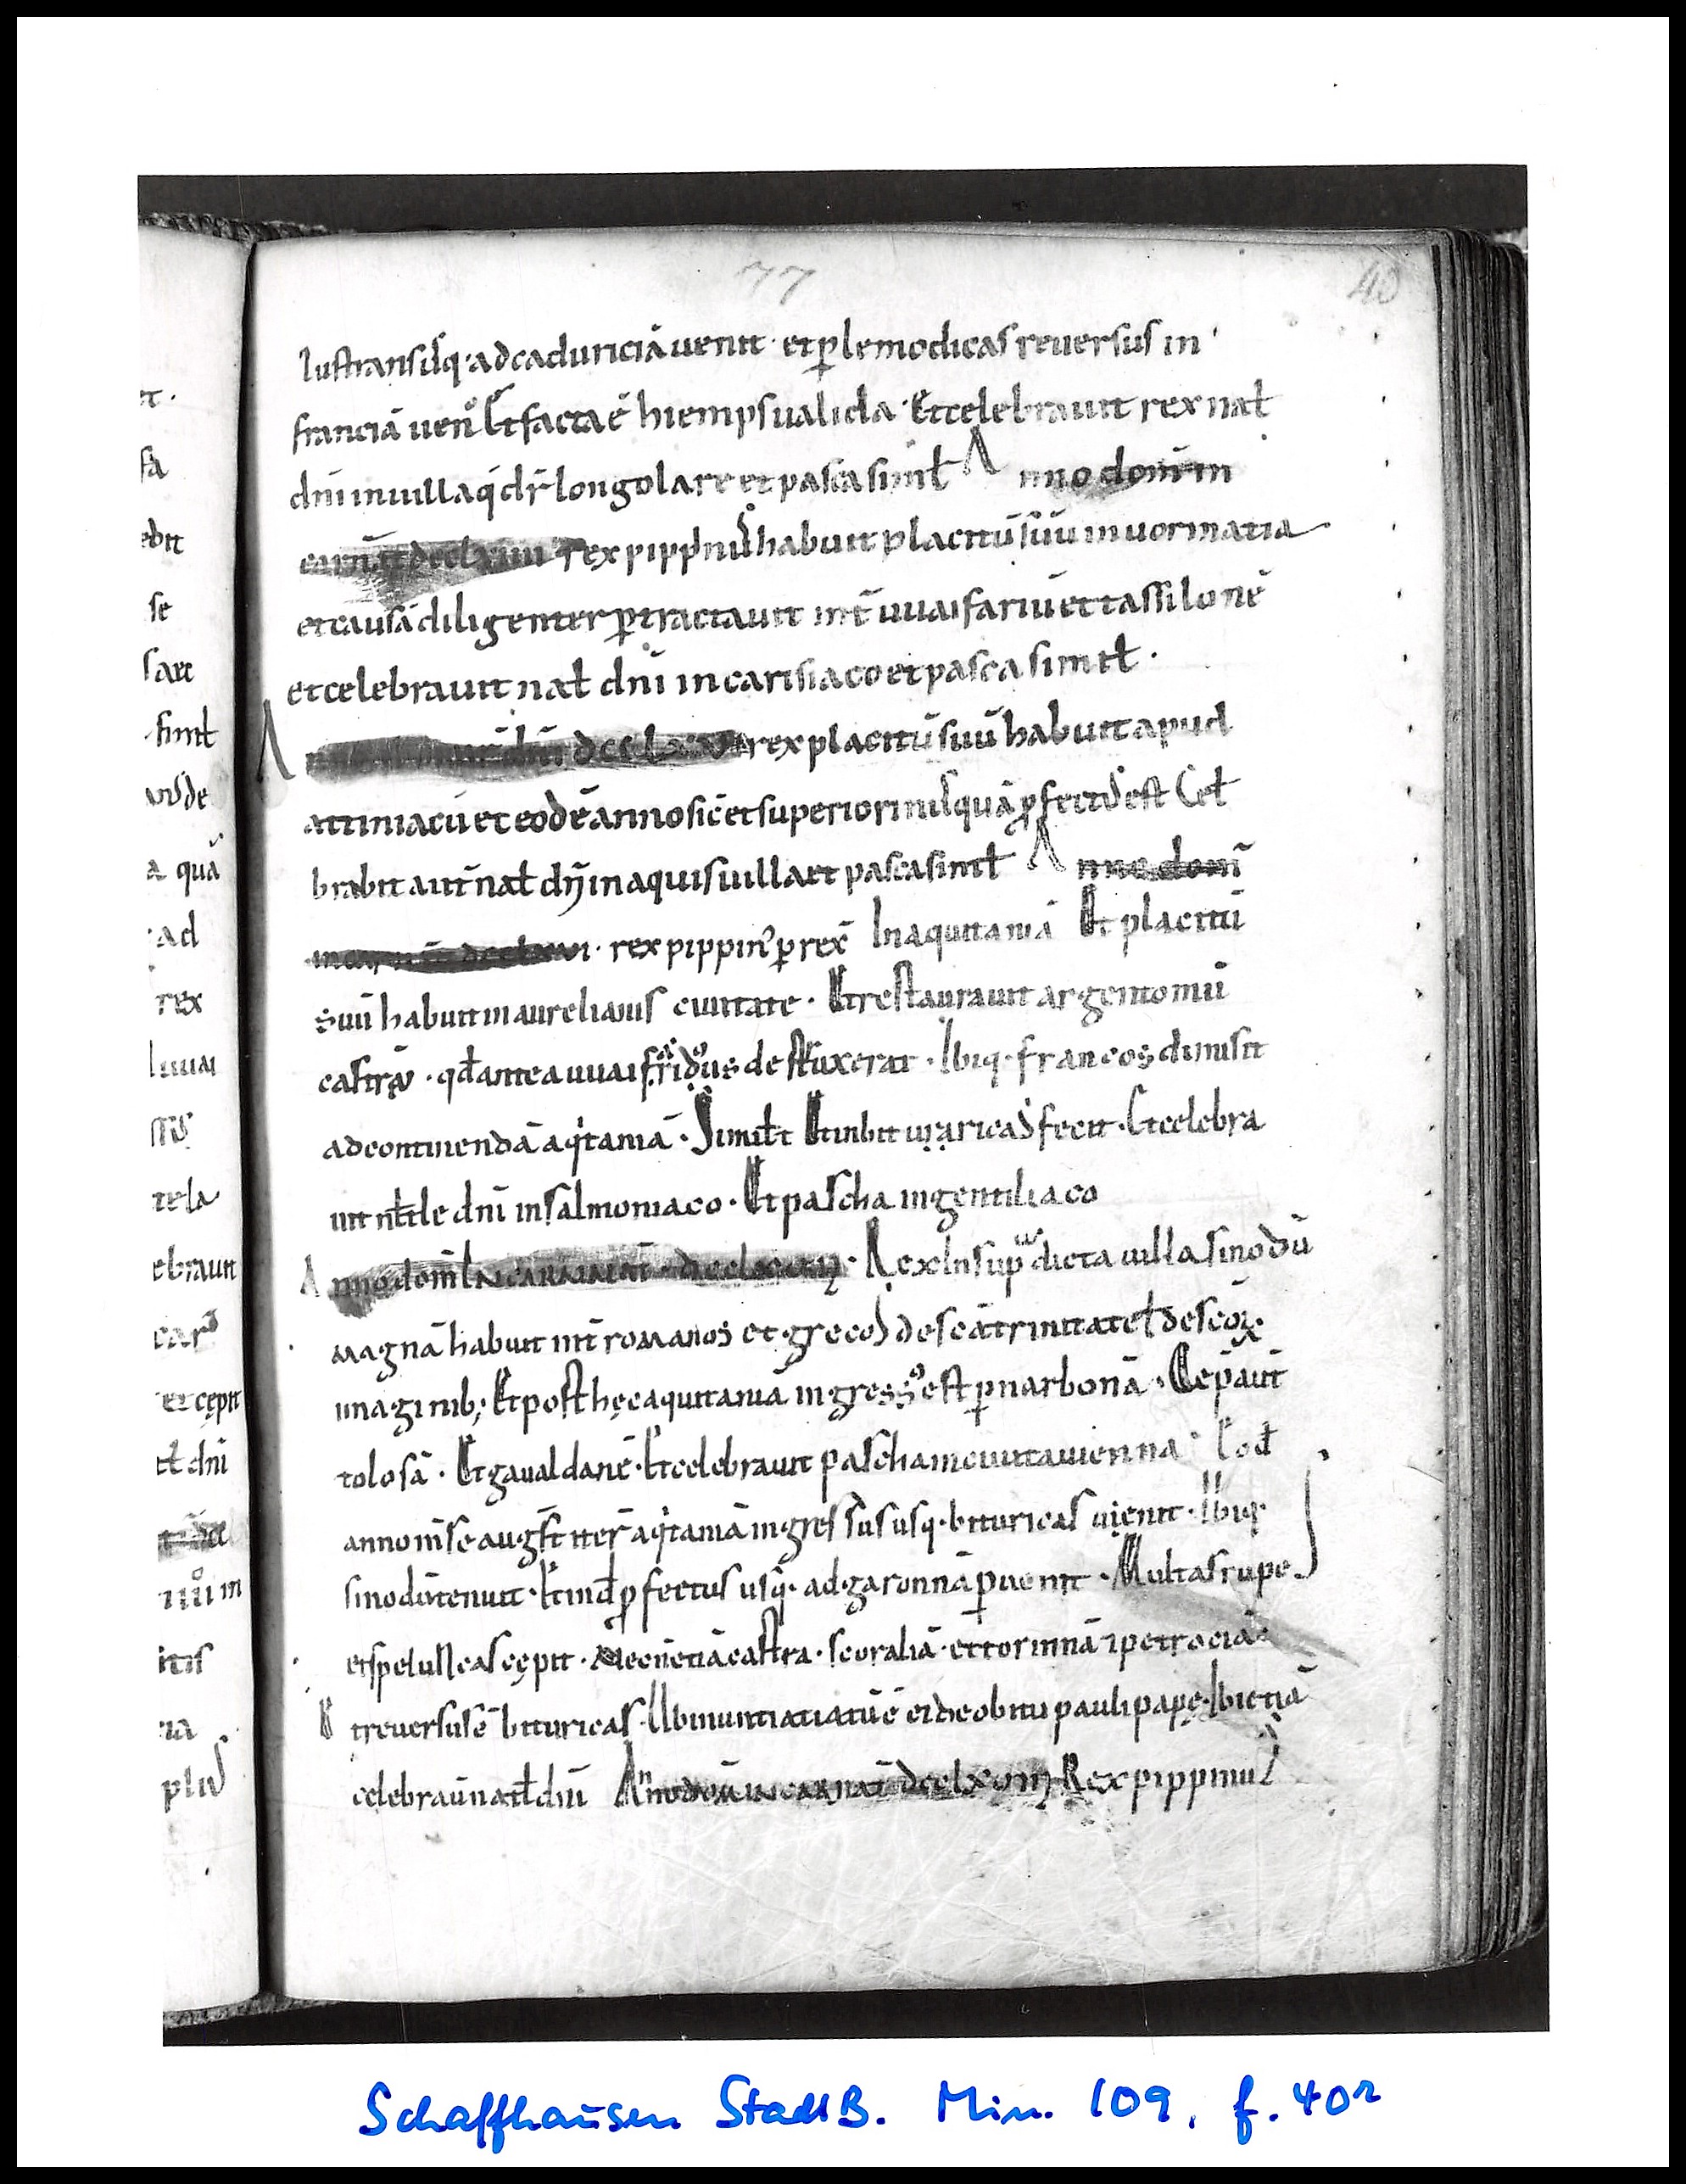 77
40
lustransusq; ad caduriciā uenit · et p̱ lemodicas reuersus in
franciā uen̄ Et facta ē hiemps ualida · Et celebrauit rex nat̄
dn̄i in uilla q̄ dr̄ longolare et pasca simil̄ Anno dom̄ in
carn̄ dcclxiiii rex pippinus habuit placitū suū in uormatia
et causā diligenter p̱tractauit int̄ uuaifariū et tassilonē
et celebrauit nat̄ dn̄i in carisiaco et pasca simil̄ ·
A dcclxv rex placitū suū habuit apud
attiniacū et eodē anno sic̄ et superiori nusquā p̱fectus est Cel
brabit aut̄ nat̄ dn̄i in aquis uilla et pasca simil̄ Anno dom̄
incarn̄ dcclxvi · rex pippin' p̱rex̄ In aquitaniā Et placitū
suū habuit in aurelianis ciuitate · Et restaurauit argentomū
castrū · qd̄ antea uuaifaridus destruxerat · Ibiq; francos dimisit
ad continendā aq̇taniā · Simil̄ Et in bituricas fecit · Et celebra
uit nt̄le dn̄i in salmoniaco · Et pascha in gentiliaco
Anno dom̄ Incarnat̄ · dcclxvii · Rex In sup̱dicta uilla sinodū
magnā habuit int̄ romanos et grecos de sc̄a trinitate ł de sc̄oꝝ
imaginib; Et post hęc aquitaniā ingressus est p̱ narbonā · Cep̄ aut̄
tolosā · Et gaualdanē · Et celebrauit pascha in ciuita uienna · Eod̄
anno m̄se auḡst iter̄ aq̇taniā ingressus usq; bituricas uienit · Ibiq;
sinodū tenuit · Et ind̄ p̱fectus usq; ad garonnā p̱uenit · Multas rupe
et speluncas cępit · castra · scoraliā · et torinnā ⁊ petrociā
Et reuersus ē bituricas · Ubi nuntiatū ē ei de obitu pauli papę · Ibi etiā
celebrau̅ nat̄ dn̄i Anno dom̄ incarnat̄ dcclxviii Rex pippinus
Schaffhausen StadtB. Min. 109, f. 40r